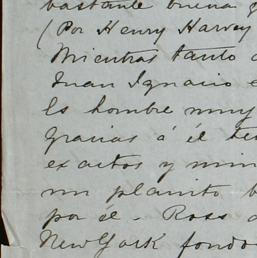 bastante buena
(Por Henry Harvey
Mientras tanto
Juan Ignacio
Es hombre muy
Gracias á él
exactos y
un planito
por él - Ross
New York